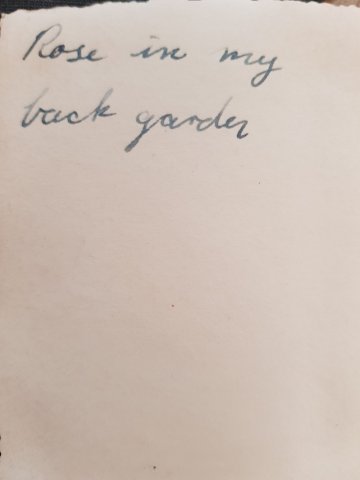 Rose in my
back garden